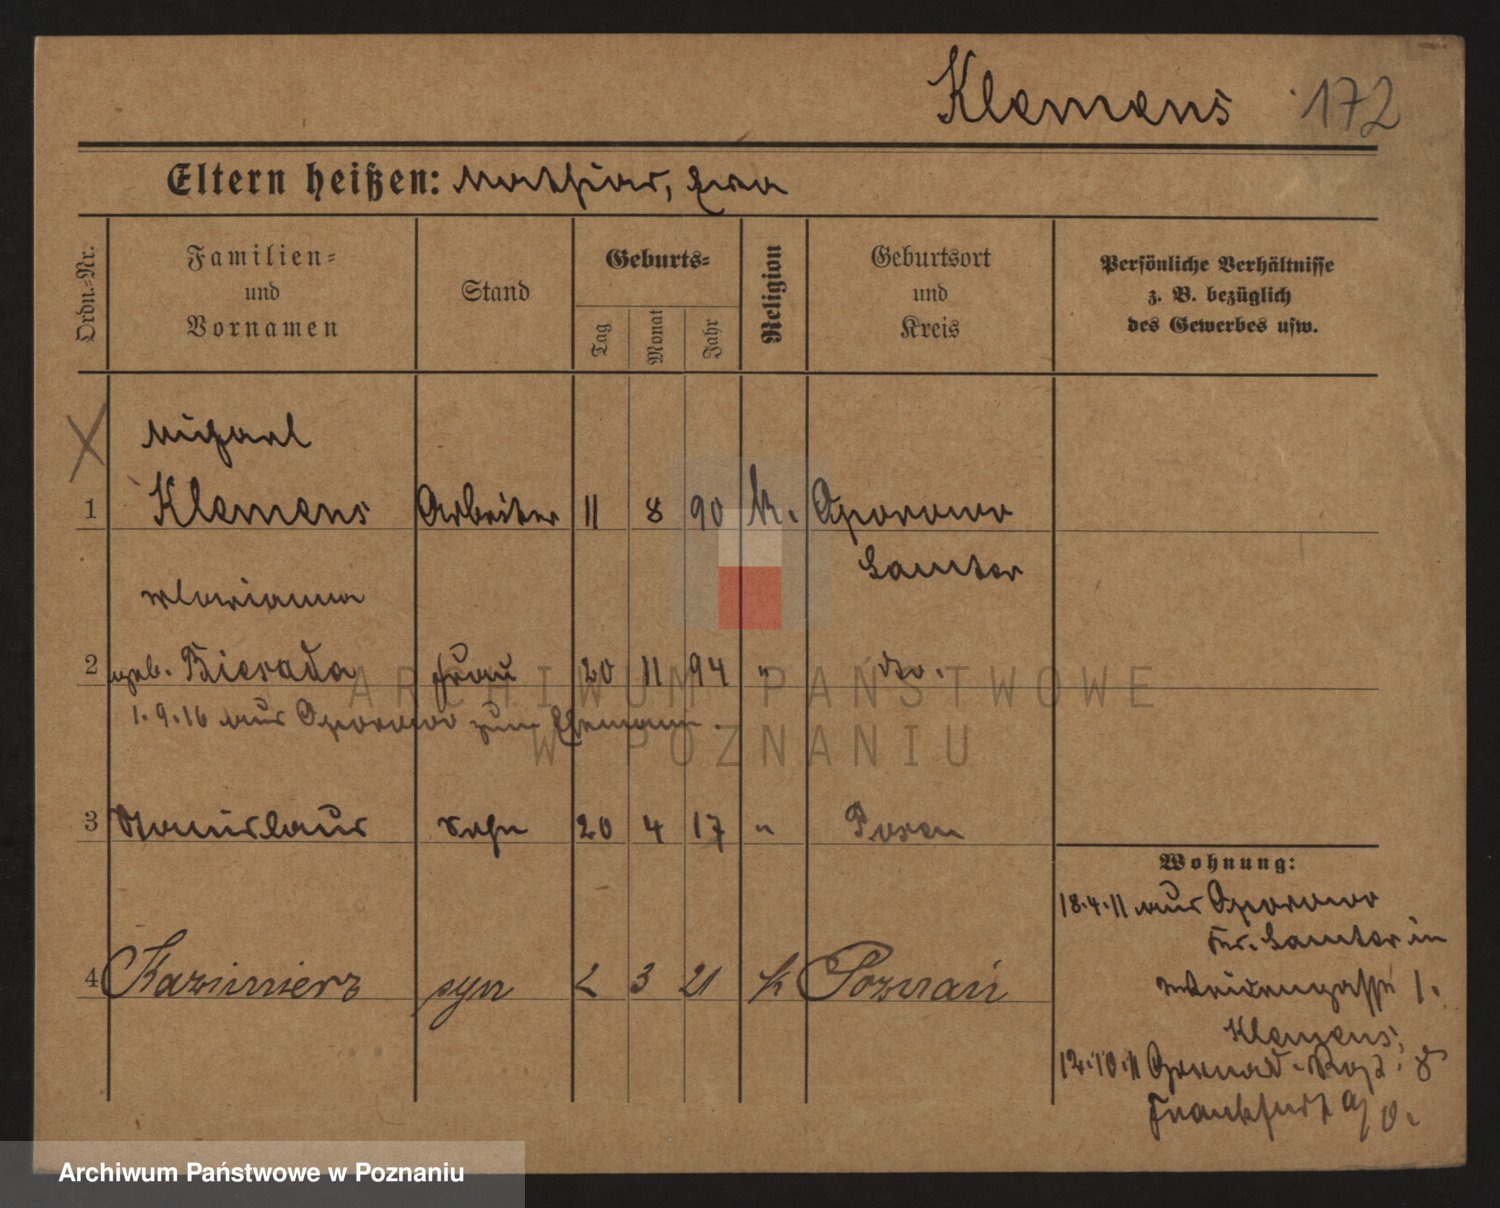 Klemens 172
Eltern heißen: Mathias, Eva
Ordn.=Nr.
Familien=
und
Vornamen
Stand
Geburts=
Tag
Monat
Jahr
Religion
Geburtsort
und
Kreis
Persönliche Verhältnisse
z. B. bezüglich
des Gewerbes usw.
Michael
1 Klemens Arbeiter 11 8 90 k. Oporowo
Samter
Marianna
2 geb. Biesada Frau 20 11 94 " do.
1.9.16 aus Oporowo zum Ehemann.
3 Stanislaus Sohn 20 4 17 " Posen
Wohnung:
18.4.11 aus Oporowo
Kr. Samter in
Weidengasse 1.
Klemens,
4 Kazimierz syn 2 3 21 k Poznań
12.10.11 Grenad. Regt. 8
Frankfurt a/O.
ARCHIWUM PAŃSTWOWE
W POZNANIU
Archiwum Państwowe w Poznaniu